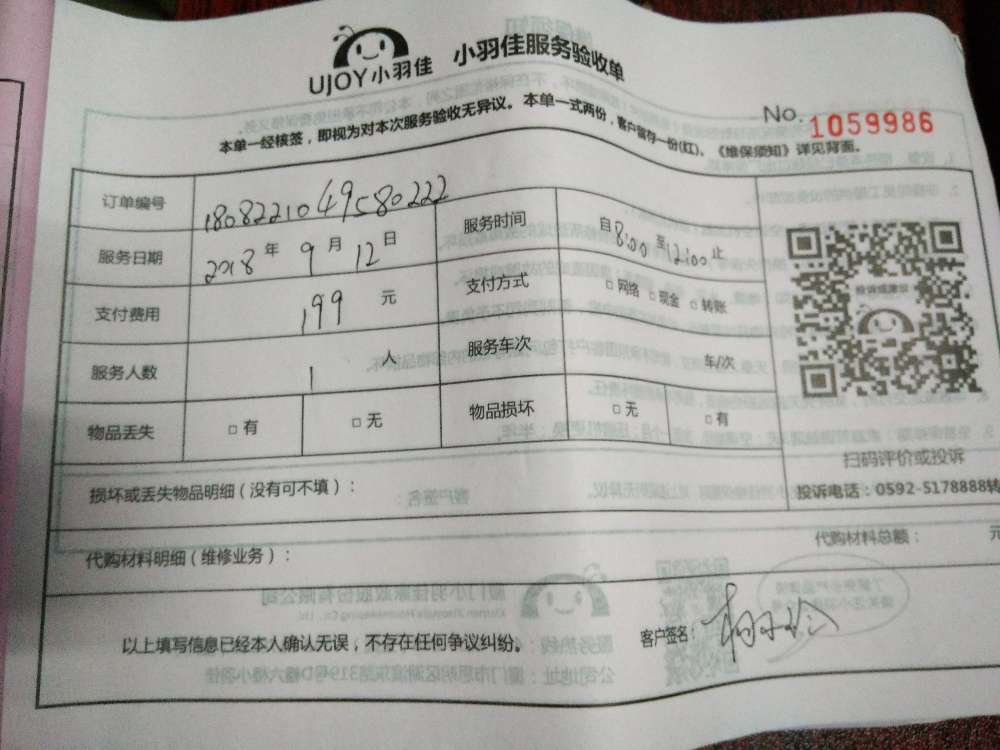 UJOY小羽佳 小羽佳服务验收单
No. 1059986
本单一经核签，即视为对本次服务验收无异议。本单一式两份，客户留存一份(红)。《维保须知》详见背面。
订单编号 1808221049580222
服务日期 2018年9月12日 服务时间 自8:00至12:00止
支付费用 199元 支付方式 □网络 □现金 □转账
投诉或建议
服务人数 1人 服务车次 车/次
物品丢失 □有 □无 物品损坏 □无 □有
扫码评价或投诉
损坏或丢失物品明细（没有可不填）：
投诉电话：0592-5178888转
代购材料明细（维修业务）： 代购材料总额： 元
以上填写信息已经本人确认无误，不存在任何争议纠纷。 客户签名：